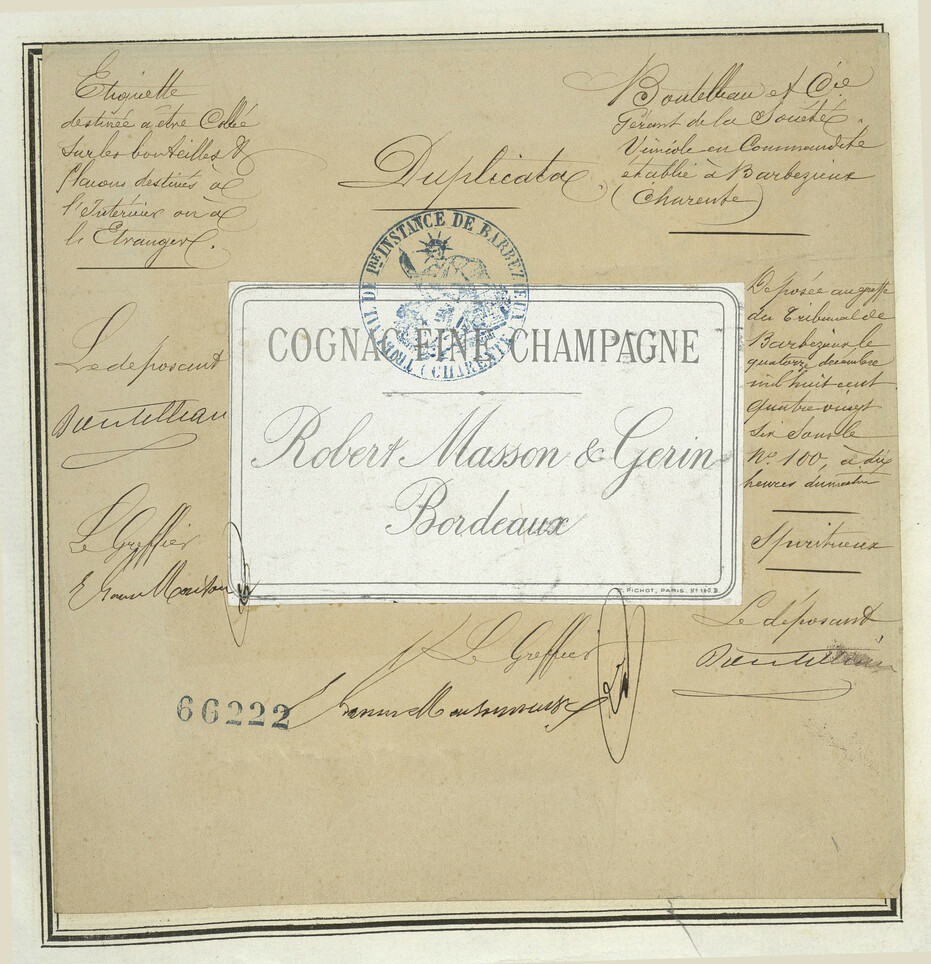 Etiquette
destinée a être Collée
sur les bouteilles &
flacons destinés à
l'Intérieur ou à
l'Etranger.
Duplicata
Boutelleau et Cie
Gérant de la Société
Vinicole en Commandite
établie à Barbezieux
(Charente)
TRIBUNAL DE 1RE INSTANCE DE BARBEZIEUX
(CHARENTE)
COGNAC FINE CHAMPAGNE
Robert Masson & Gerin
Bordeaux
F. PICHOT, PARIS. No
Le déposant
Boutelleau
Le Greffier
Déposée au greffe
du Tribunal de
Barbezieux le
quatorze décembre
mil huit cent
quatre vingt
six sous le
No. 100, à dix
heures du matin
Spiritueux
Le déposant
Boutelleau
Le Greffier
66222